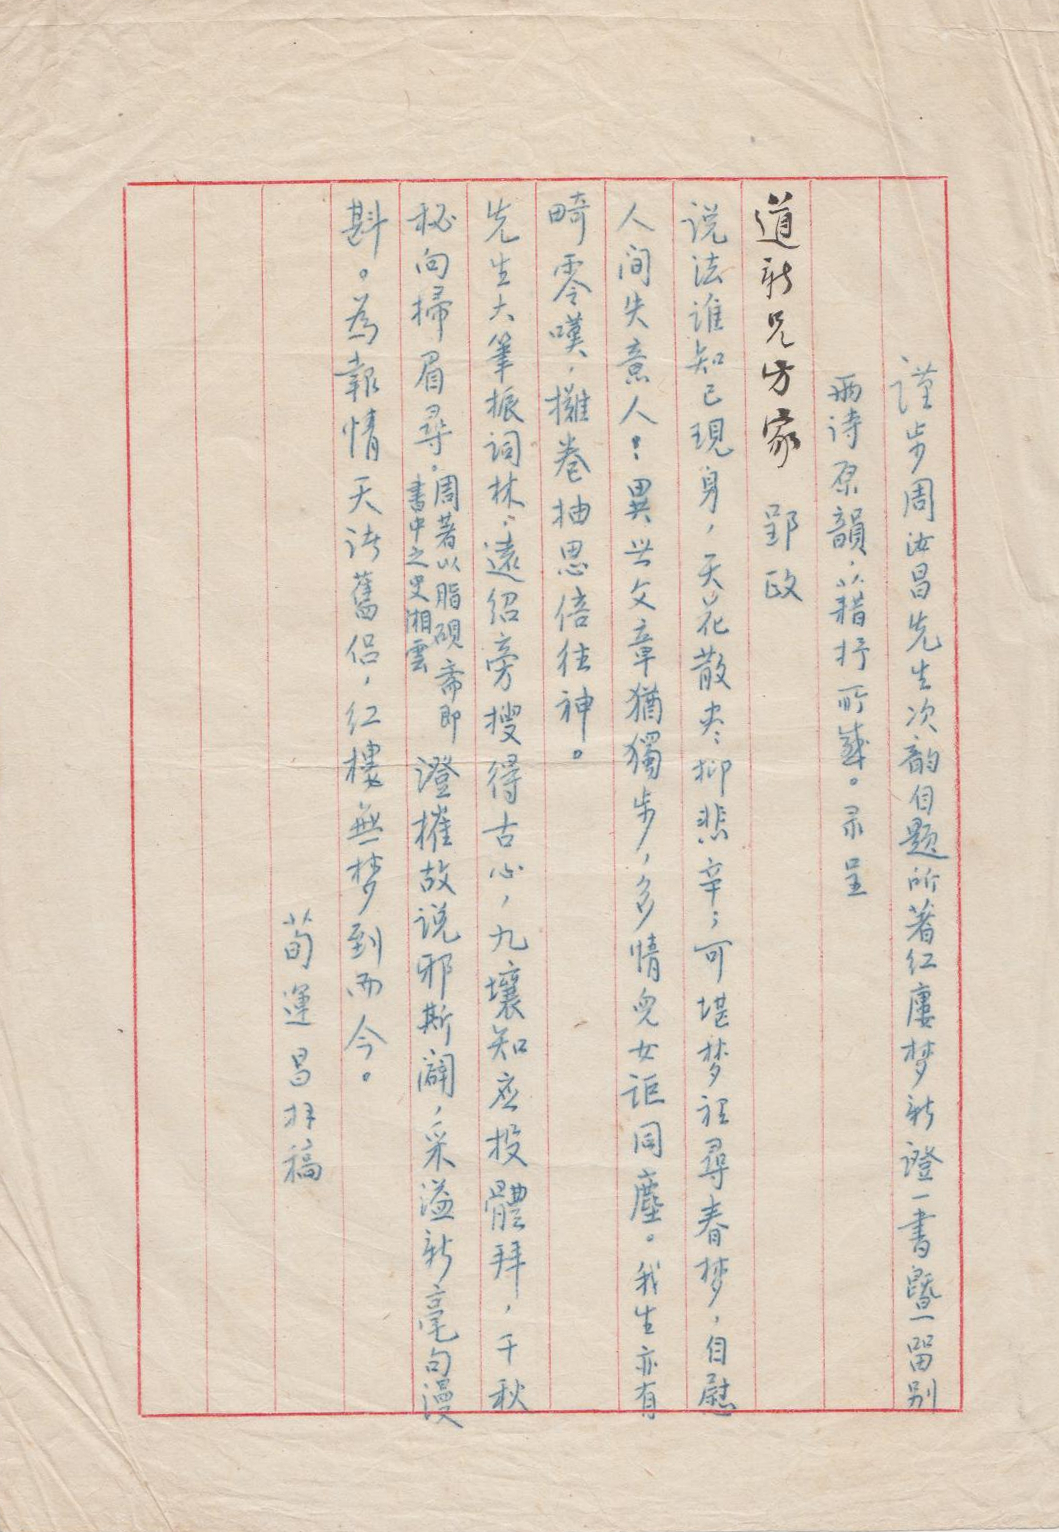 谨步周汝昌先生次韵自题所著红廔梦新證一書暨留别
两诗原韻，以藉抒所感。录呈
道新兄方家 郢政
说法谁知已現身，天花散尽抑悲辛；可堪梦裡尋春梦，自慰
人间失意人！異世文章猶獨步，多情兒女詎同塵。我生亦有
畸零嘆，攤卷抽思倍往神。
先生大筆振词林，遠绍旁搜得古心，九壤知应投體拜，千秋
秘向掃眉尋。周著以脂砚斋即書中之史湘雲 澄摧故说邪斯闢，采溢新毫句漫
斟。為報情天诸舊侣，红樓無梦到而今。
荀運昌拜稿